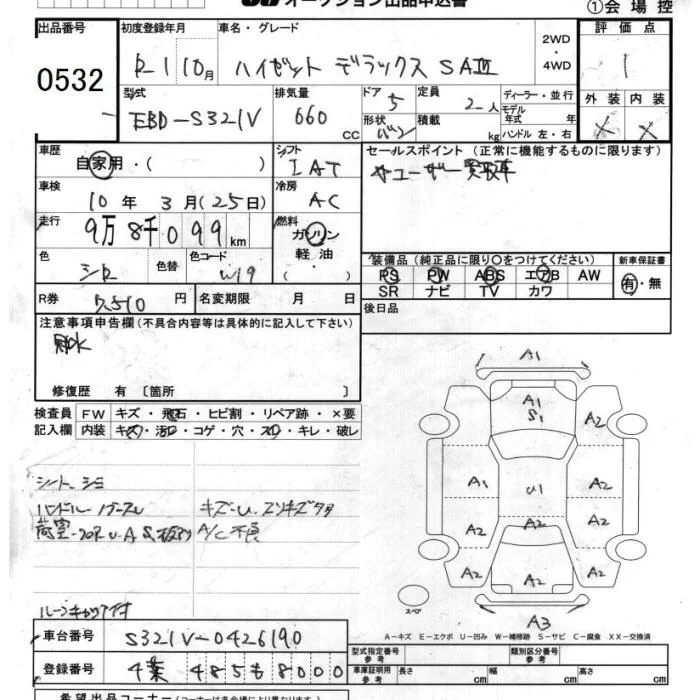 オークション出品申込書
①会場控
出品番号
0532
初度登録年月
R1 10月
車名・グレード
ハイゼット デラックス SAⅢ
2WD
・
4WD
評価点
1
外装 内装
× ×
型式
EBD-S321V
排気量
660 cc
ドア 5
形状 バン
定員 2人
積載 kg
ディーラー・並行
モデル年式 年
ハンドル 左・右
車歴
自家用・( )
シフト
IAT
車検
10年 3月(25日)
冷房
AC
走行
9万8千099km
燃料
ガソリン
軽油
( )
色
シロ
色替
色コード
W19
R券
7,510円
名変期限 月 日
セールスポイント (正常に機能するものに限ります)
ユーザー買取車
装備品(純正品に限り○をつけてください)
PS PW ABS エアB AW
SR ナビ TV カワ
新車保証書
有・無
後日品
注意事項申告欄(不具合内容等は具体的に記入して下さい)
修復歴 有〔箇所 〕
検査員 FW キズ・飛石・ヒビ割・リペア跡・×要
記入欄 内装 キズ・汚・コゲ・穴・スレ・キレ・破レ
シート シミ
キズ・U
A/C不良
ルーフキャリア付
A1
A1
S1
A2
A1
U1
A2
A2
A2
A2
A2
A2
A2
A3
スペア
A-キズ E-エクボ U-凹み W-補修跡 S-サビ C-腐食 XX-交換済
車台番号
S321V-0426190
登録番号
千葉 485 も 8000
型式指定番号
参考
類別区分番号
参考
車庫証明用
参考
長さ cm
幅 cm
高さ cm
希望出品コーナー